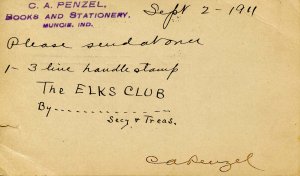 C. A. PENZEL,
BOOKS AND STATIONERY,
MUNCIE, IND.
Sept 2-1911
Please send at once
1- 3 line handle stamp
The ELKS CLUB
By
Secy & Treas.
C A Penzel